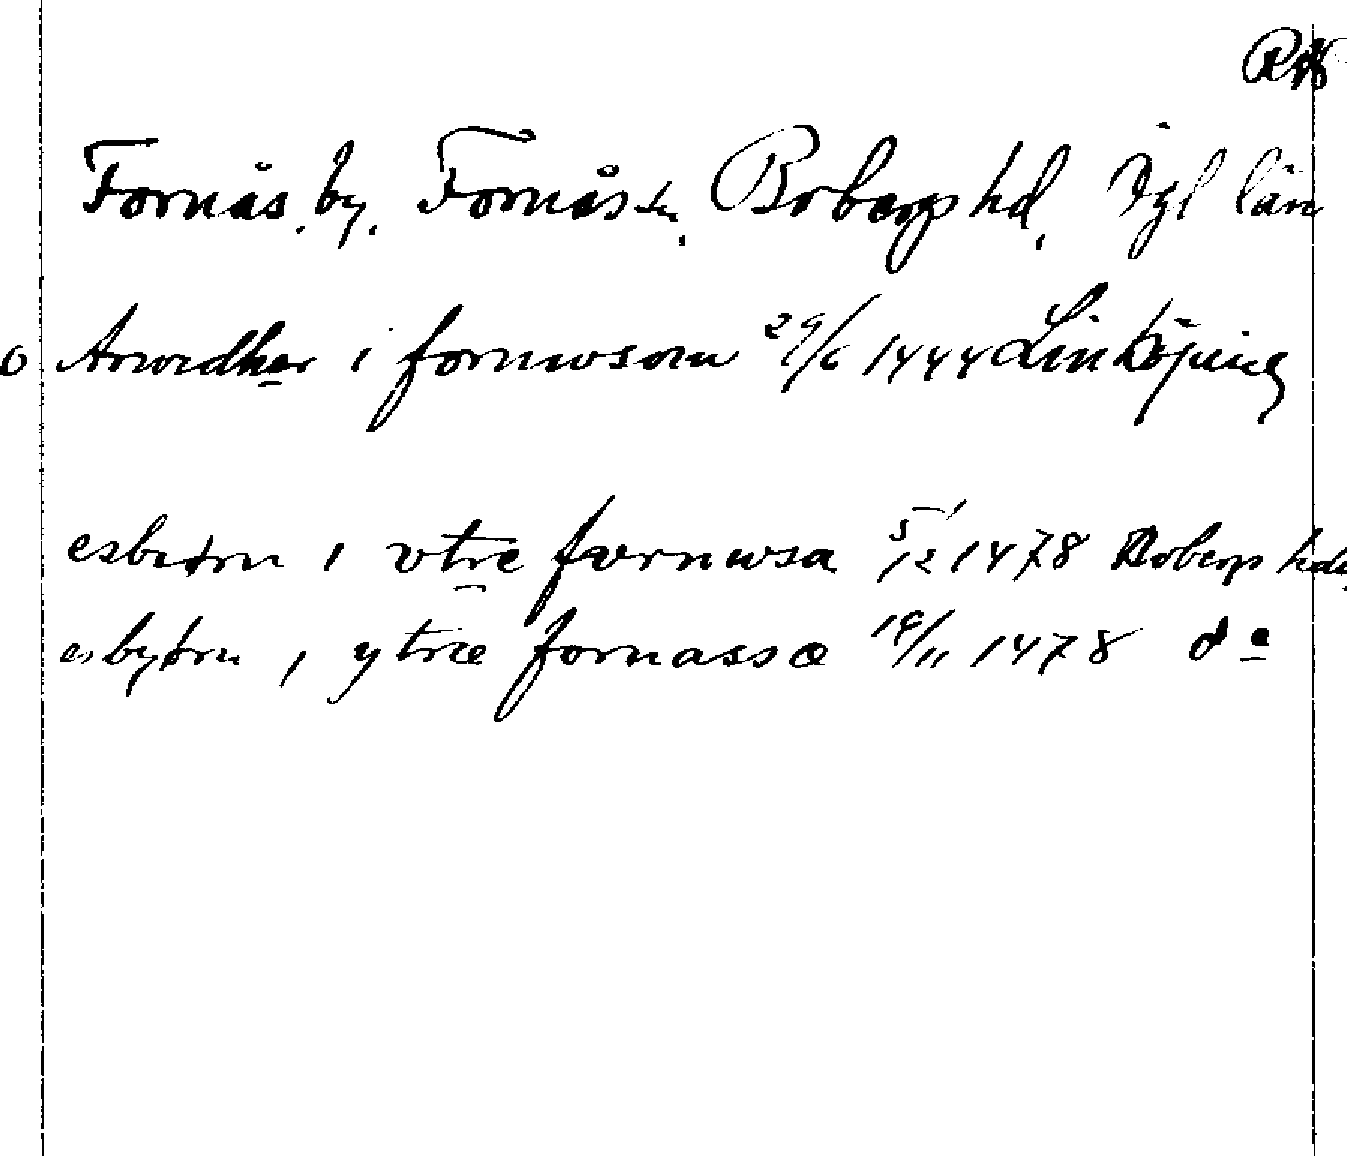 Fornås, by, Fornåsa sn, Boberg hd, Ögl län
O Arwedher i fornwsom 29/6 1444 Linköping
esbiørn i vtre fornwsa 5/12 1478 Bobergs hd
esbyørn i ytræ fornassæ 18/11 1478 do